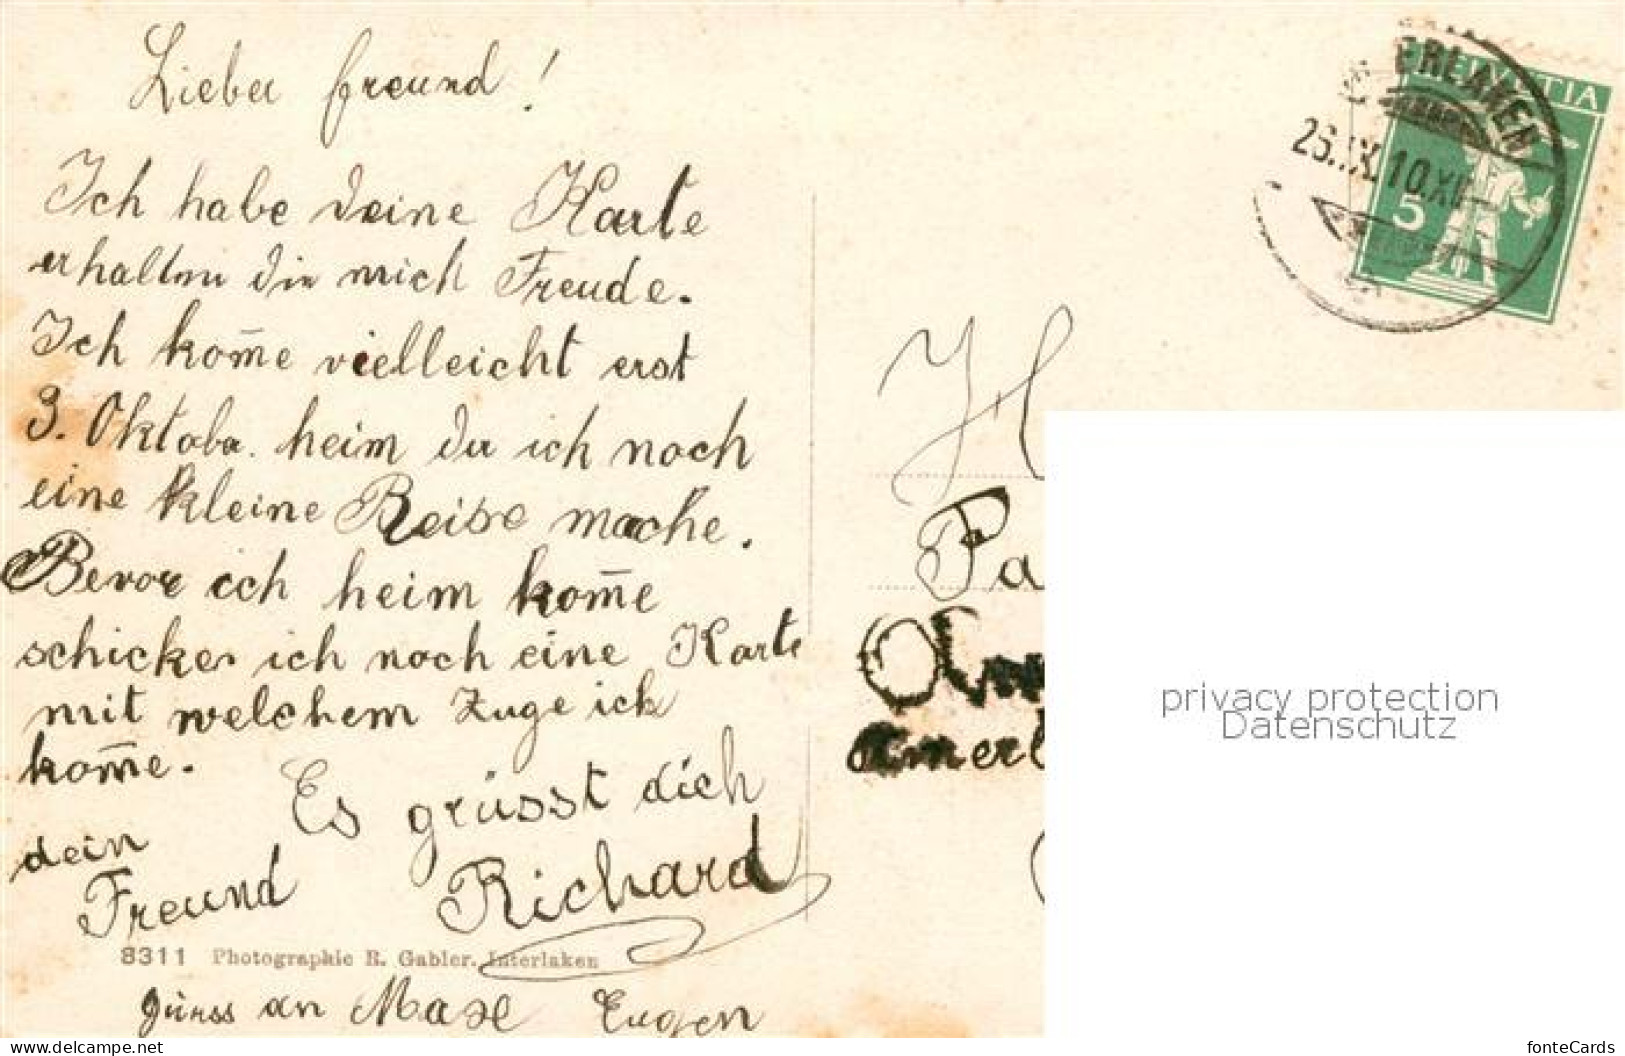 Lieber freund!
Ich habe deine Karte
erhalten die mich Freude.
Ich kom̄e vielleicht erst
3. Oktober. heim da ich noch
eine kleine Reise mache.
Bevor ich heim kom̄e
schicke ich noch eine Karte
mit welchem Zuge ich
kom̄e.
Es grüsst dich
dein
Freund Richard
8311 Photographie R. Gabler. Interlaken
an Max Eugen
HELVETIA
5
ERLAKEN
26.IX.10.XII
H
Pa
privacy protection
Datenschutz
www.ansichtskarten-center.de
fonteCards